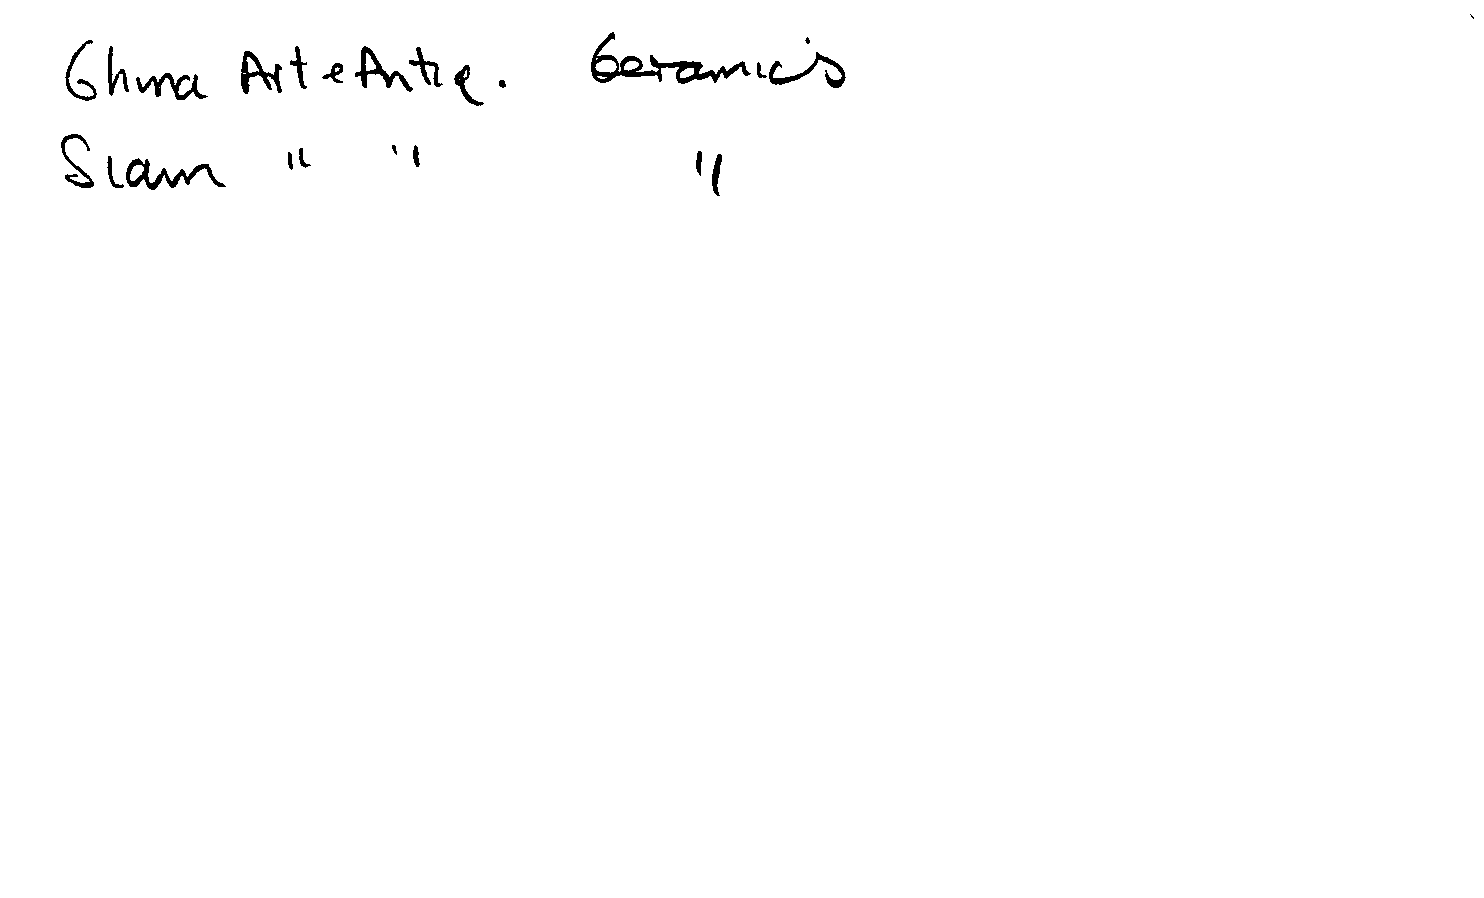 China Art & Antiq. Ceramics
Siam " " "